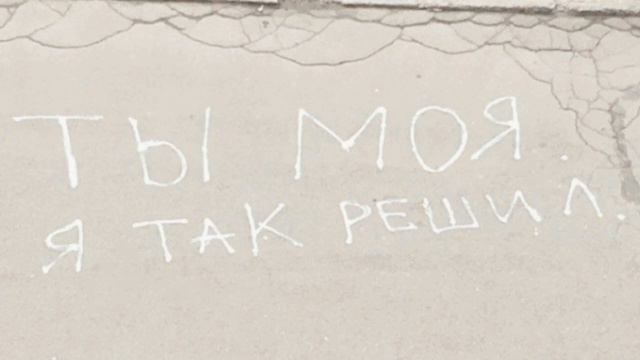 ТЫ МОЯ.
Я ТАК РЕШИЛ.